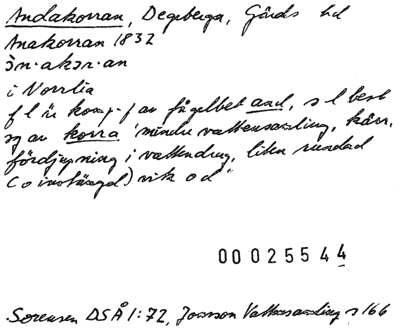 Andakorran, Degeberga, Gärds hd
Anakorran 1832
ɔ̀n·akɔr·an
i Norrlia
f l är komp-f av fågelbet and, s l best
sg av korra 'mindre vattensamling, kärr,
fördjupning i vattendrag, liten rundad
(o instängd) vik o d'
00025544
Sørensen DSÅ 1:72, Jonsson Vattensamling s 166